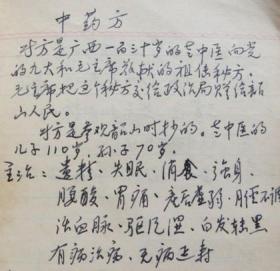 中药方
对方是广西一百三十岁的老中医向党
的九大和毛主席敬献的祖传秘方，
毛主席把这个秘方交给政治局赠给韶
山人民。
对方是参观韶山时抄的。老中医的
儿子110岁，孙子70岁。
主治：遗精、失眠、消食、强身、
腰酸、胃痛、虚弱、月经不调
治血脉、驱风湿、白发转黑
有病治病，无病延寿